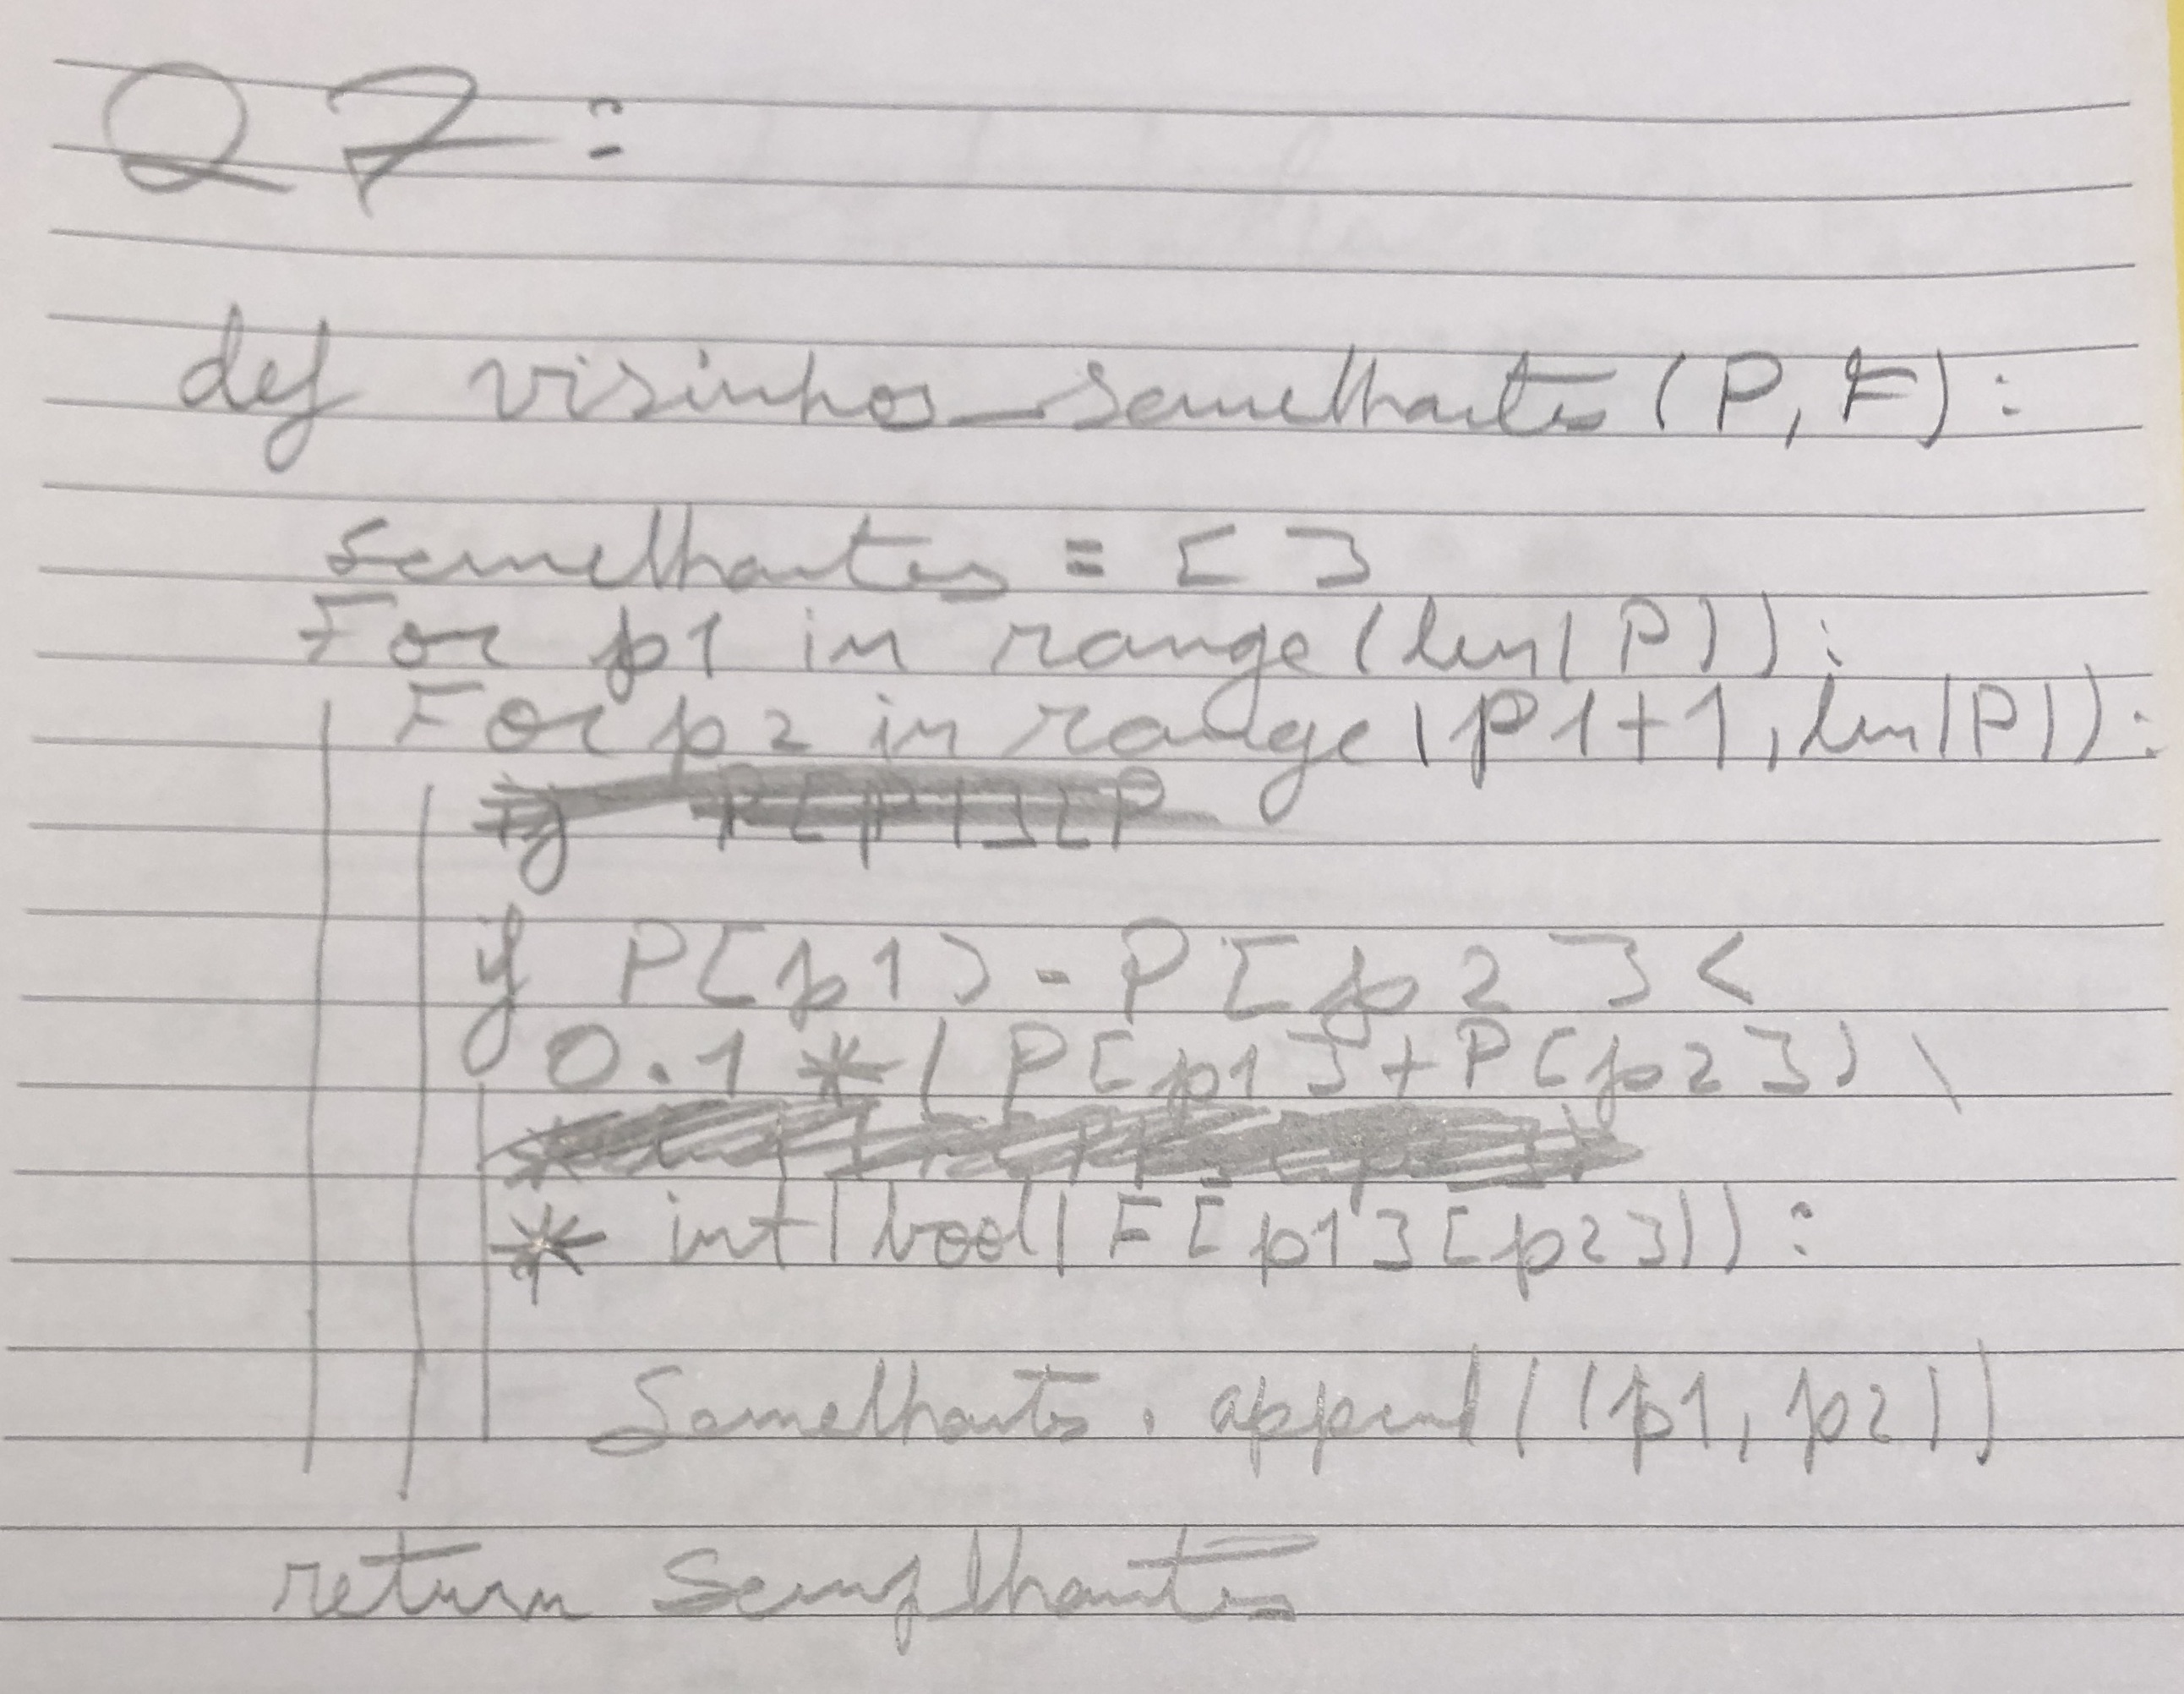 Q7:
def visinhos_semelhantes(P, F):
semelhantes = [ ]
For p1 in range(len(P)):
For p2 in range(p1+1, len(P)):
if P[p1][P
if P[p1] - P[p2] <
0.1 * (P[p1] + P[p2]) \
* int(bool(F[p1][p2])):
Semelhantes.append((p1, p2))
return Semelhantes